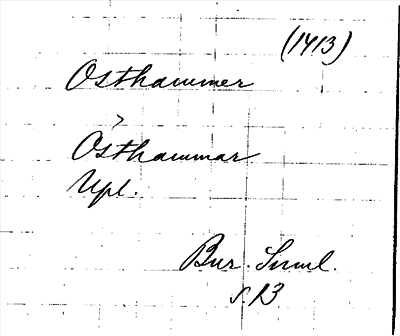 (1413)
Osthammer
>
Östhammar
Upl.
Bur. Suml.
s. 13